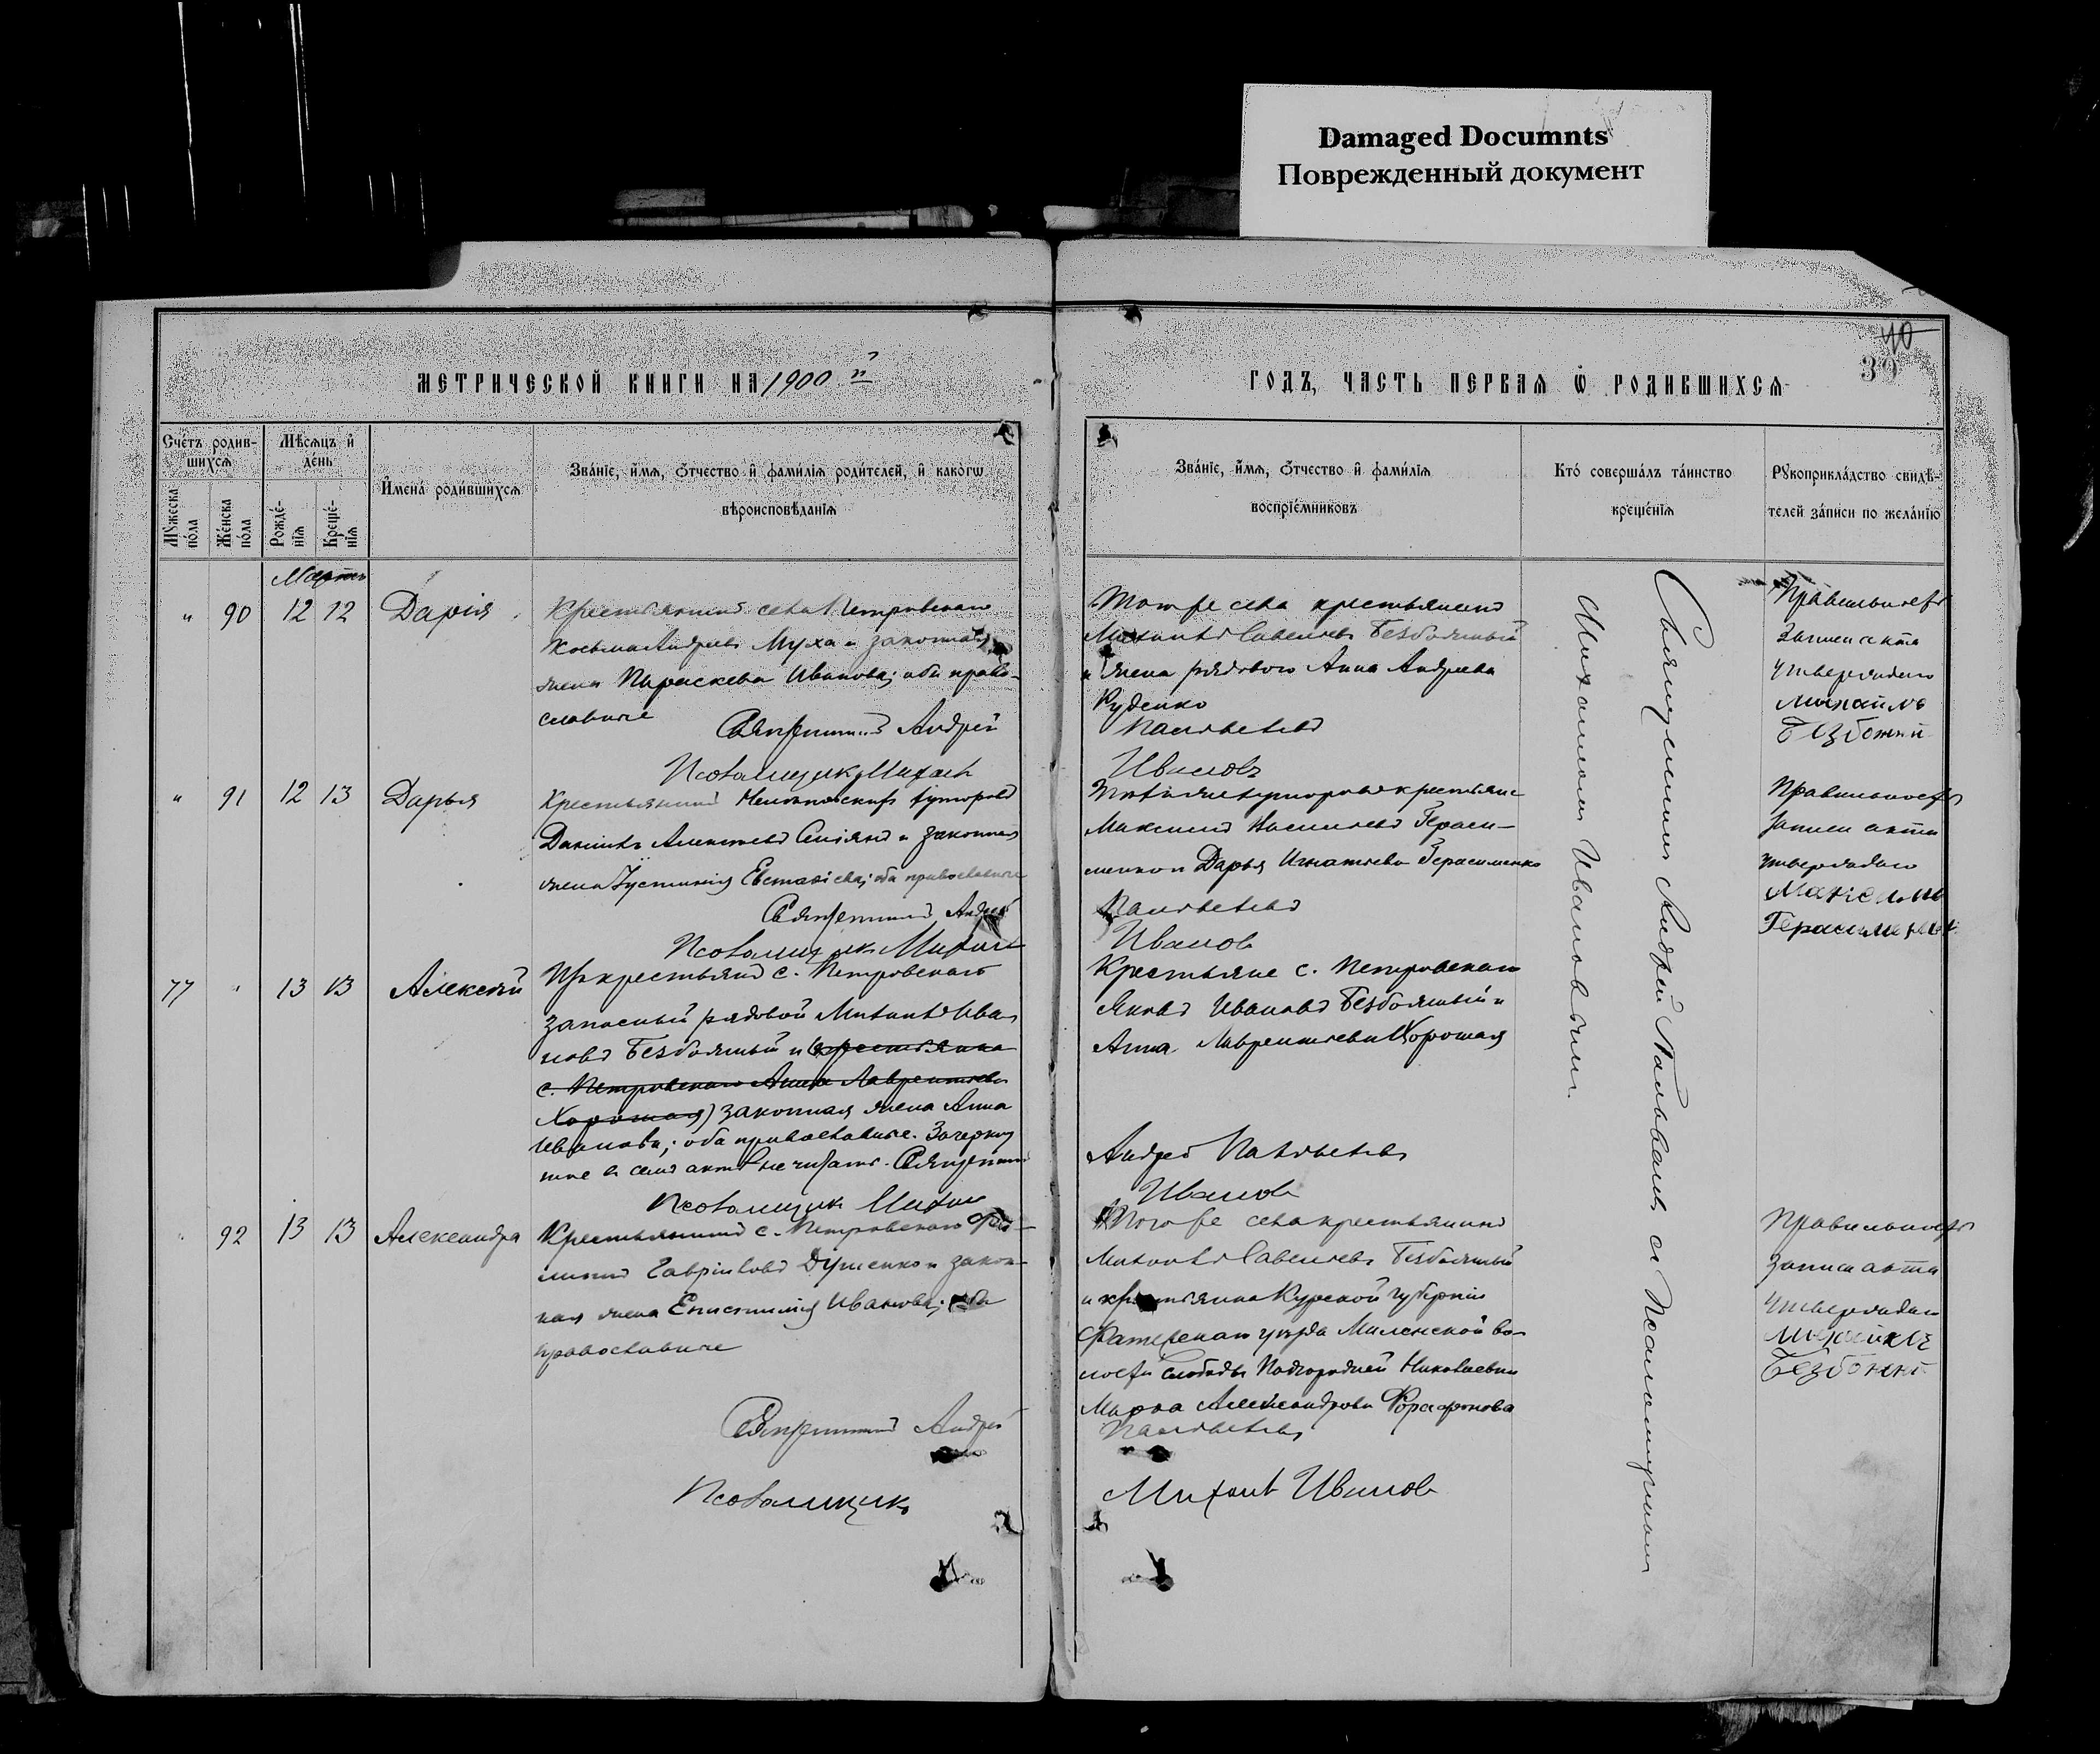 Damaged Documnts
Поврежденный документ
40
39
МЕТРИЧЕСКОЙ КНИГИ НА 1900 й
ГОДЪ, ЧАСТЬ ПЕРВАЯ Ѿ РОДИВШИХСЯ
Счéтъ родив-
шихсѧ
Мѣ́сѧцъ и҆
де́нь
Мꙋжеска
по́ла
Же́нска
по́ла
Рожде́-
нїѧ
Креще́-
нїѧ
И҆мена̀ роди́вшихсѧ
Зва́нїе, и҆́мѧ, ѻ҆́тчество и҆ фами́лїѧ роди́телей, и҆ како́гѡ
вѣроисповѣ́данїѧ
Зва́нїе, и҆́мѧ, ѻ҆́тчество и҆ фами́лїѧ
воспрїе́мниковъ
Кто̀ соверша́лъ та́инство
креще́нїѧ
Рꙋкоприкла́дство свидѣ́-
телей за́писи по жела́нїю
Мартъ
" 90 12 12 Дарія
Крестьянинъ села Петровскаго
Косьма Андреевъ Муха и законная
жена Параскева Иванова; оба право-
славные
Священникъ Андрей
Псаломщикъ Михаил
Того же села крестьянинъ
Михаилъ Савельевъ Безбожный
и жена рядового Анна Андреева
Руденко
Пальвелевъ
Ивановъ
Правильность
записи акта
утверждаю
Михаилъ
Безбожний
" 91 12 13 Дарья
Крестьянинъ хуторовъ
Даніилъ Алексеевъ и законная
жена Іустинія Евстафіева; оба православные
Священникъ Андрей
Псаломщикъ Михаил
хуторовъ крестьяне
Максимъ Васильевъ Гераси-
менко и Дарья Игнатьева Герасименко
Пальвелевъ
Иванов
Правильность
записи акта
утверждаю
Максимъ
Герасименко
77 " 13 13 Алексѣй
Изъ крестьянъ с. Петровскаго
запасный рядовой Михаилъ Ива-
новъ Безбожный и (крестьянка
с. Петровскаго Анна Лаврентьева
Хорошая) законная жена Анна
Иванова; оба православные. Зачеркну-
тое въ семъ актѣ не читать. Священникъ
Псаломщик Михаил
Крестьяне с. Петровскаго
Яковъ Ивановъ Безбожный и
Анна Лаврентьева Хорошая
Андрей Пальвелевъ
Иванов
" 92 13 13 Александра
Крестьянинъ с. Петровскаго
Гавріиловъ Душенко и закон-
ная жена Епистимія Иванова; оба
православные
Священникъ Андрей
Псаломщикъ
Того же села крестьянинъ
Михаилъ Савельевъ Безбожный
и крестьянка Курской губерніи
Фатежскаго уѣзда во-
лости слободы Подгородней Николаевки
Марѳа Александрова
Пальвелевъ
Михаил Иванов
Правильность
записи акта
утверждаю
Михаилъ
Безбожний
Священникъ Андрей Пальвелевъ съ Псаломщикомъ
Михаиломъ Ивановымъ.